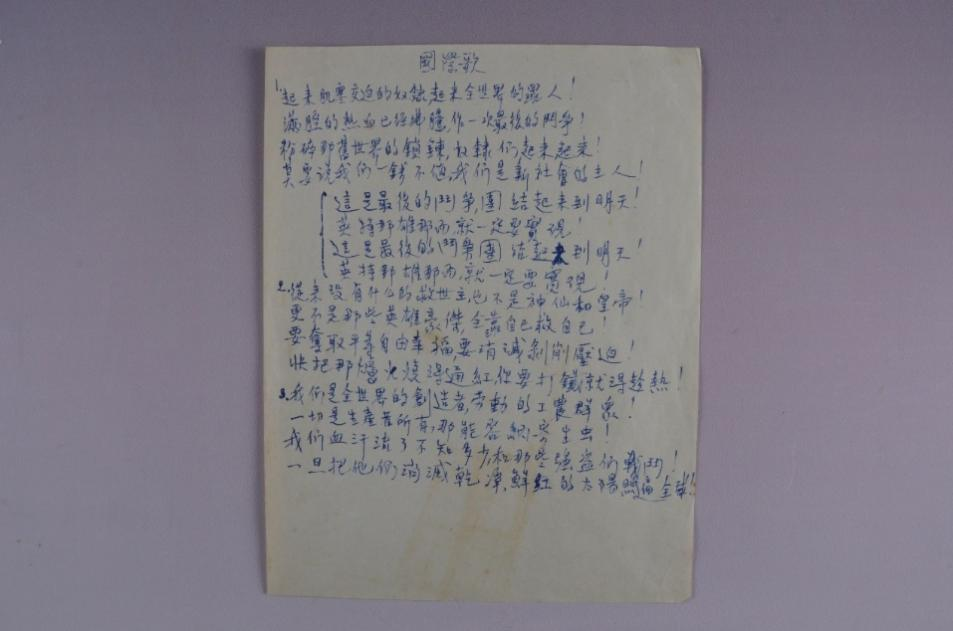 國際歌
1.起来飢寒交迫的奴隸,起来全世界的罪人!
滿腔的熱血已經沸騰,作一次最後的鬥争!
粉碎那舊世界的鎖鍊,奴隸们起来起来!
莫要说我们一錢不值,我们是新社會的主人!
這是最後的鬥争,團结起来到明天!
英特那雄那而,就一定要實現!
這是最後的鬥争團结起来到明天!
英特那雄那而,就一定要實現!
2.從来没有什么的救世主,也不是神仙和皇帝!
更不是那些英雄豪傑,全靠自己救自己!
要奪取平等自由幸福,要消滅剝削壓迫!
快把那爐火燒得通紅,你要打鐵就得趁熱!
3.我们是全世界的創造者,劳動的工農群衆!
一切是生產者所有,那能容納寄生虫!
我们血汗流了不知多少,和那些強盗们戰鬥!
一旦把他们消滅乾净,鮮红的太陽照遍全球!